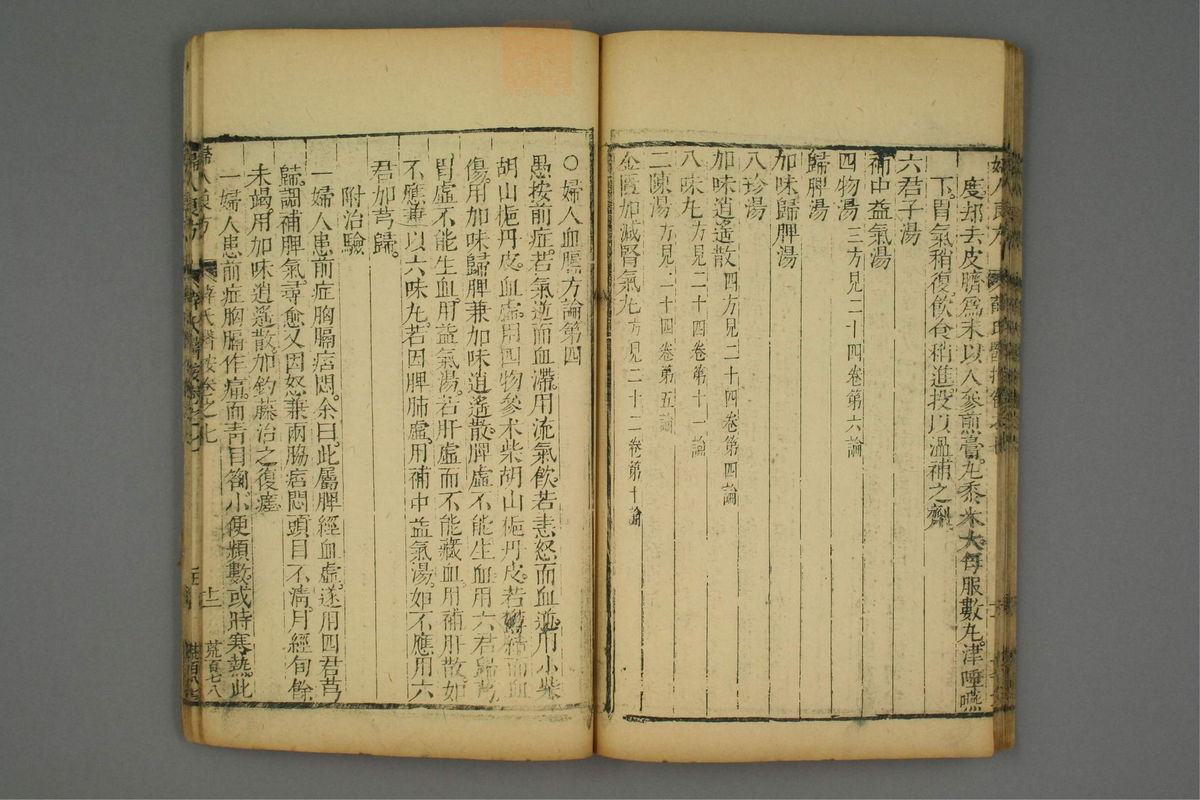 婦人良方
度却去皮臍爲末以人參煎膏丸黍米大每服數丸津唾嚥
下胃氣稍復飲食稍進投以溫補之劑
六君子湯
補中益氣湯
四物湯三方見二十四卷第六論
歸脾湯
加味歸脾湯
八珍湯
加味逍遙散四方見二十四卷第四論
八味丸方見二十四卷第十一論
二陳湯方見二十四卷第五論
金匱加減腎氣丸方見二十二卷第十論
○婦人血膈方論第四
愚按前症若氣逆而血滯用流氣飲若恚怒而血逆用小柴
胡山梔丹皮血虛用四物參朮柴胡山梔丹皮若鬱積而血
傷用加味歸脾兼加味逍遙散脾虛不能生血用六君歸芎
胃虛不能生血用益氣湯若肝虛而不能藏血用補肝散如
不應兼以六味丸若因脾肺虛用補中益氣湯如不應用六
君加芎歸
附治驗
一婦人患前症胸膈痞悶余曰此屬脾經血虛遂用四君芎
歸調補脾氣尋愈又因怒兼兩脇痞悶頭目不清月經旬餘
未竭用加味逍遙散加釣藤治之復瘥
一婦人患前症胸膈作痛面青目劄小便頻數或時寒熱此
婦人良方 薛氏醫按卷之七 十二 荒百七八